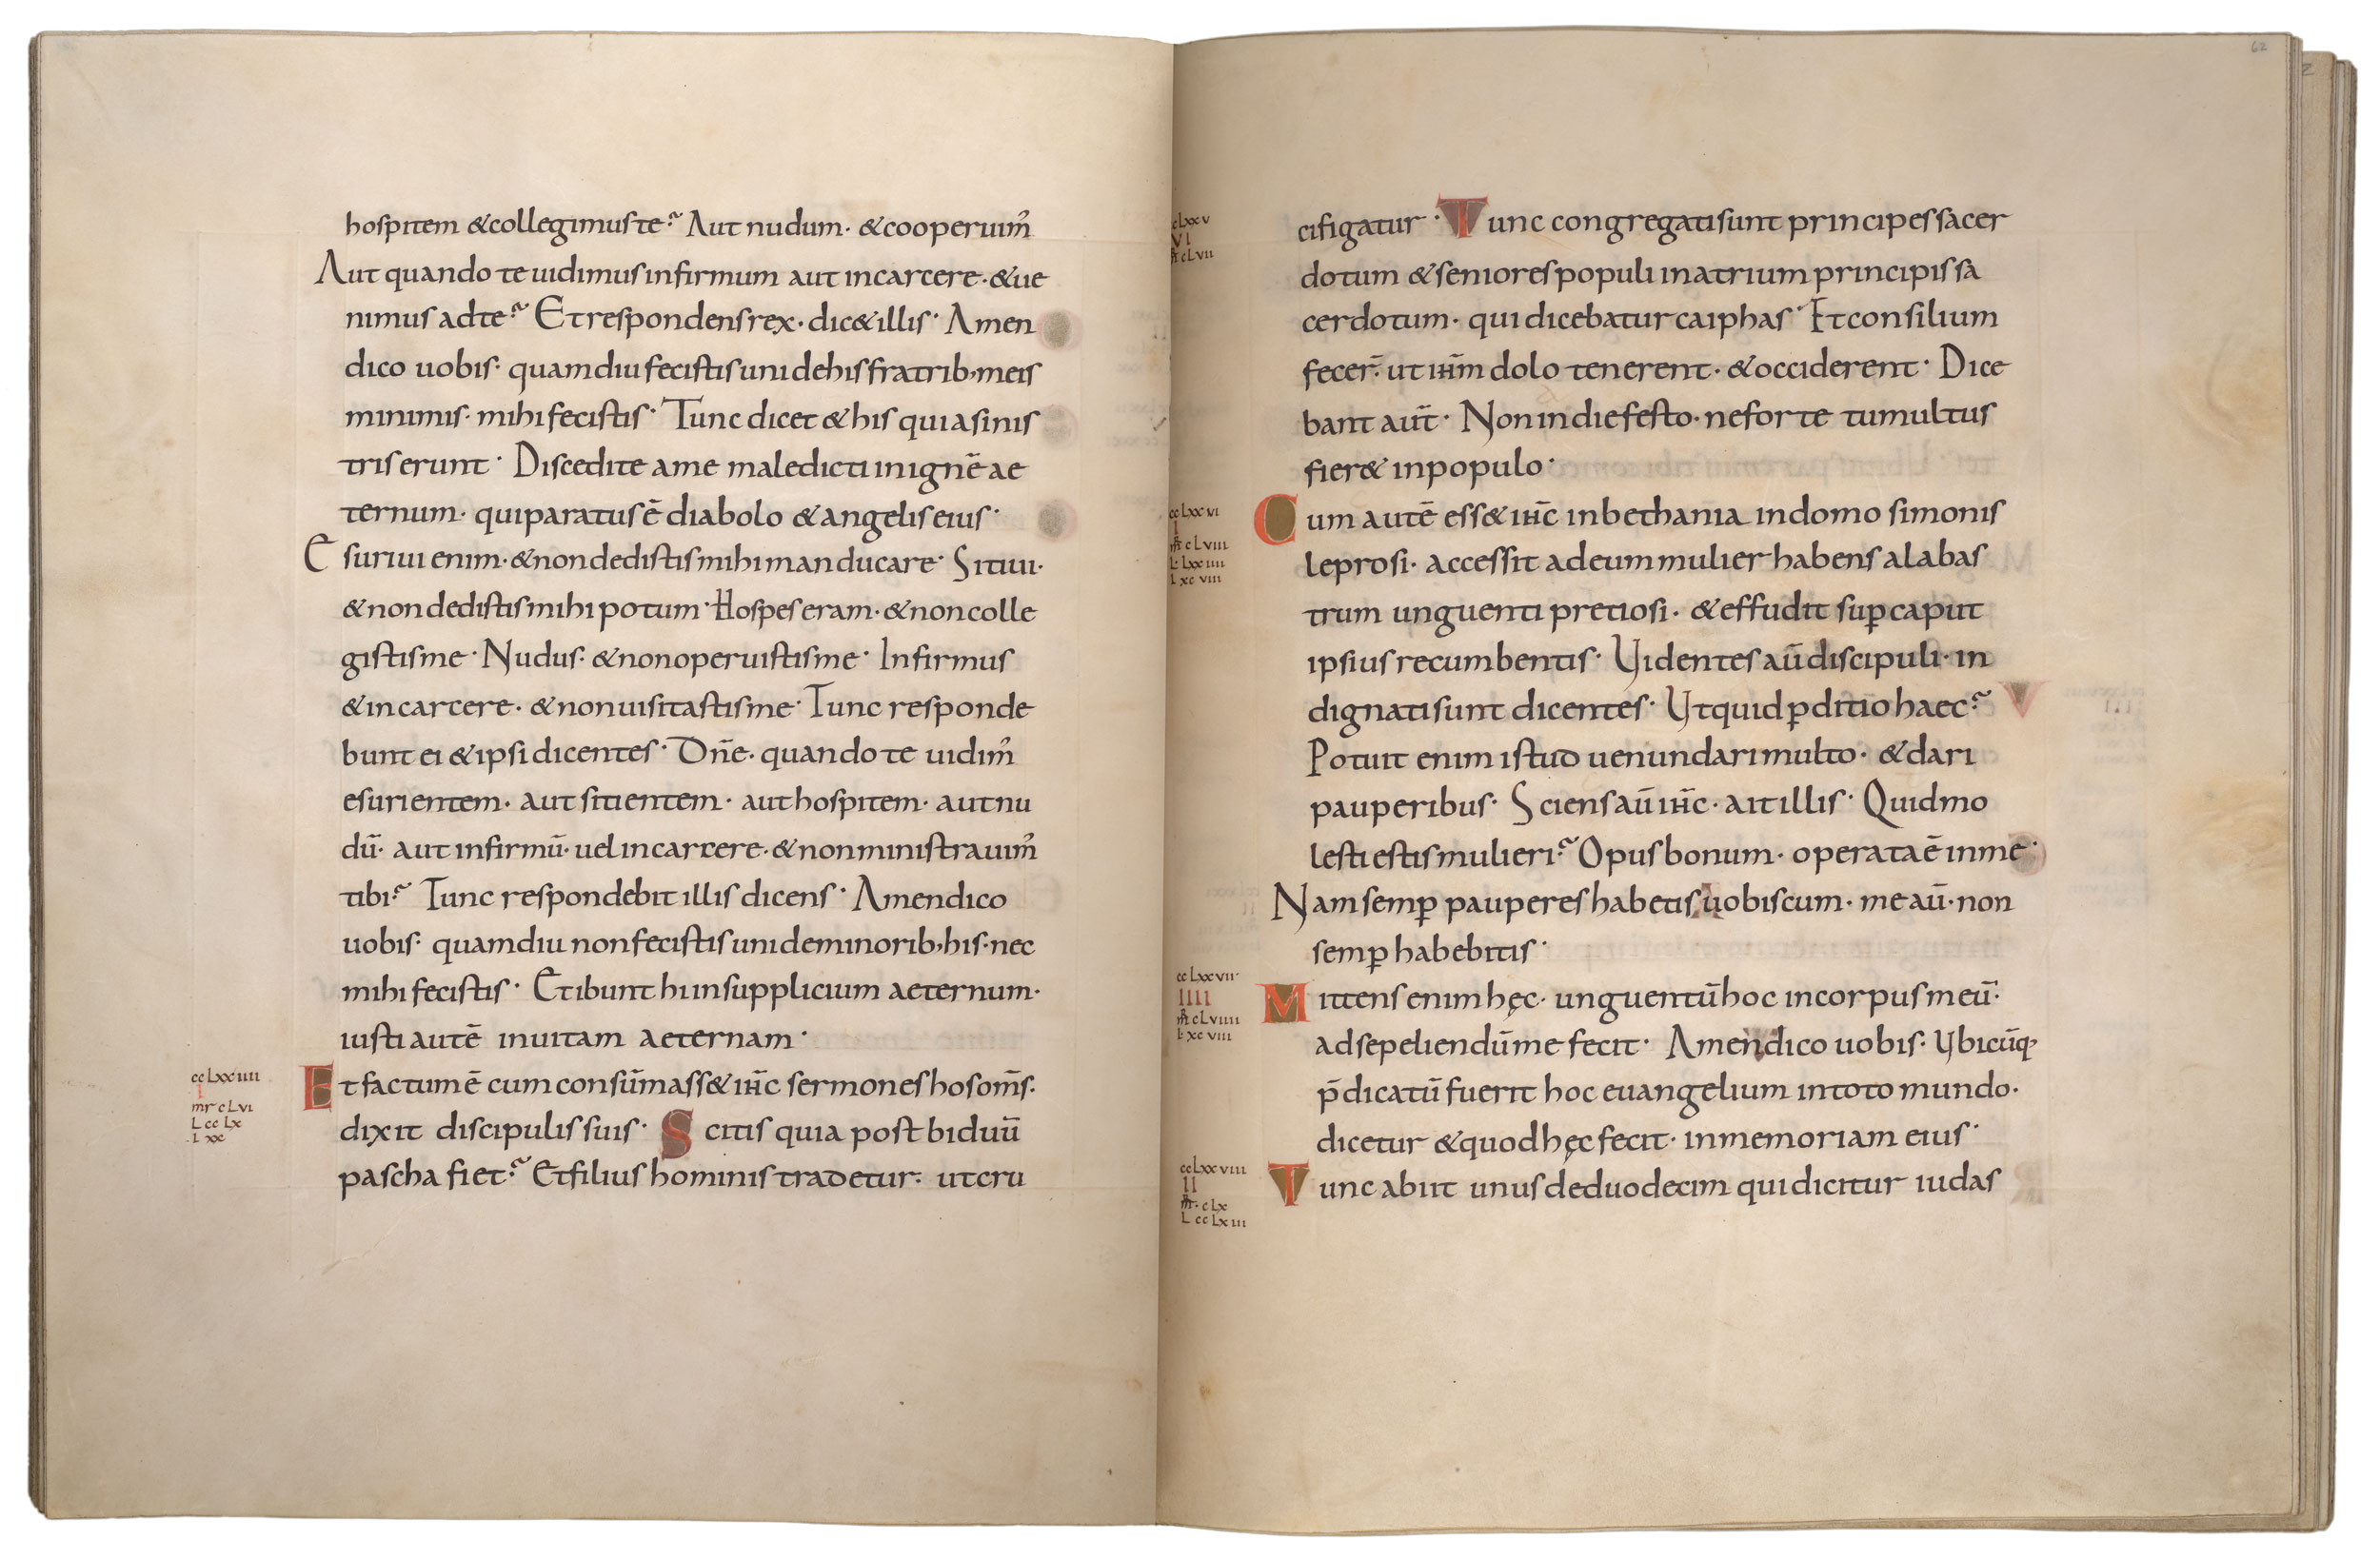 hospitem &collegimus te? Aut nudum· &cooperuim᾽
Aut quando te uidimus infirmum aut incarcere·&ue
nimus adte? Et respondens rex· dic& illis· Amen
dico uobis· quamdiu fecistis uni dehis fratrib; meis
minimis· mihi fecistis· Tunc dicet &his qui asinis
tris erunt· Discedite ame maledicti inignē ae
ternum· qui paratus ē diabolo &angelis eius·
Esuriui enim·&non dedistis mihi manducare· Sitiui·
&non dedistis mihi potum· Hospes eram·&non colle
gistis me· Nudus·&non operuistis me· Infirmus
&in carcere·&non uisitastis me· Tunc responde
bunt ei &ipsi dicentes· Dn̄e·quando te uidim᾽
esurientem· aut sitientem· aut hospitem· aut nu
dū· aut infirmū· uel incarcere·&non ministrauim᾽
tibi? Tunc respondebit illis dicens· Amen dico
uobis· quamdiu non fecistis uni de minorib; his·nec
mihi fecistis· Et ibunt hi in supplicium aeternum·
iusti autē in uitam aeternam·
cc Lxx iiii
I
mr c Lvi
L cc Lx
I xx
Et factum ē cum consūmass& ih̄c sermones hos om̄s·
dixit discipulis suis· Scitis quia post biduū
pascha fiet? Et filius hominis tradetur· ut cru
62
cLxx v
VI
mr cLvii
cifigatur· Tunc congregati sunt principes sacer
dotum &seniores populi in atrium principis sa
cerdotum· qui dicebatur caiphas· Et consilium
fecer̄· ut ih̄m dolo tenerent·&occiderent· Dice
bant aūt· Non in die festo·ne forte tumultus
fier& inpopulo·
cc Lxx vi
I
mr cLviii
L Lxx iiii
I xc viii
Cum autē ess& ih̄c in bethania in domo simonis
leprosi· accessit ad eum mulier habens alabas
trum unguenti pretiosi·&effudit sup̄ caput
ipsius recumbentis· Videntes aū discipuli·in
dignati sunt dicentes· Vt quid p̄ditio haec?
Potuit enim istud uenundari multo·&dari
pauperibus· Sciens aū ih̄c·ait illis· Quid mo
lesti estis mulieri? Opus bonum·operata ē in me·
Nam semp̄ pauperes habetis uobiscum·me aū·non
semp̄ habebitis·
cc Lxx vii
IIII
mr cLviiii
I xc viii
Mittens enim hęc·unguentū hoc in corpus meū·
ad sepeliendū me fecit· Amen dico uobis· Vbicūq;
p̄dicatū fuerit hoc euangelium in toto mundo·
dicetur &quod hęc fecit·in memoriam eius·
cc Lxx viii
II
mr·c Lx
L cc Lx iii
Tunc abiit unus de duodecim qui dicitur iudas